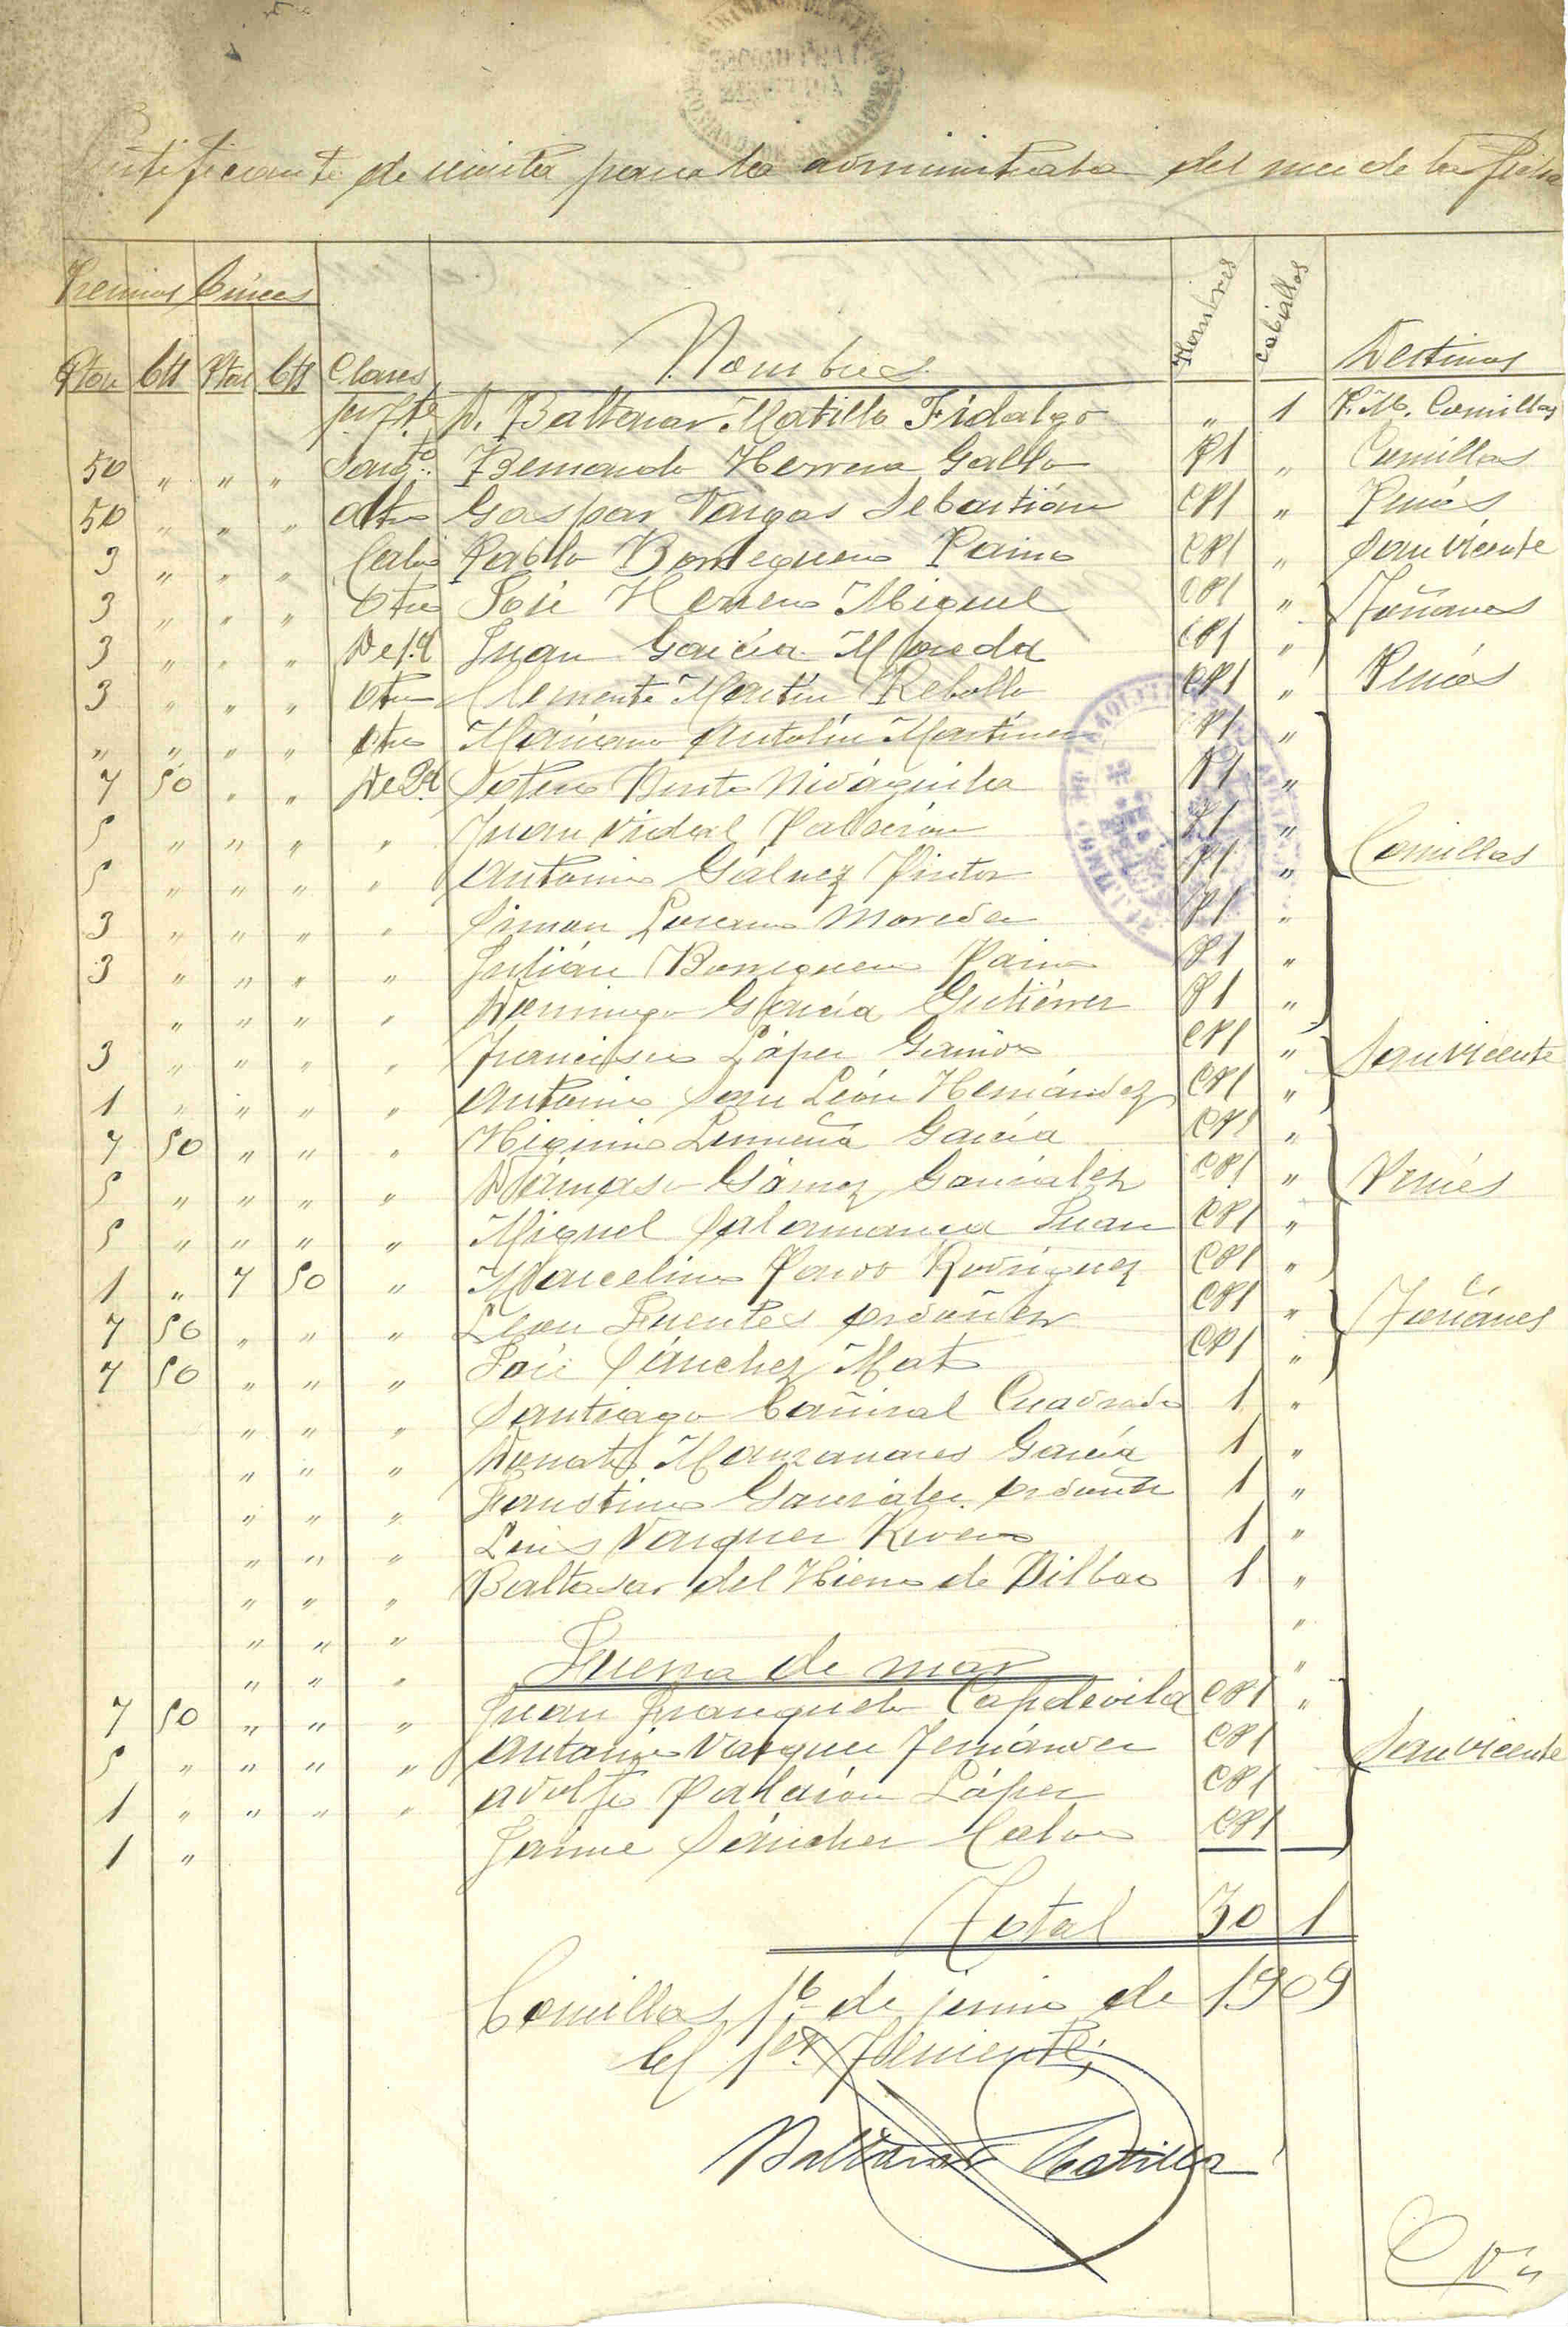 Justificante de revista para la administrativa del mes de la fecha
Premios Cruces
Ptas Cts Ptas Cts Clases Nombres Hombres Caballos Destinos
pr. Tte D. Baltasar Matilla Fidalgo " 1 P.M. Comillas
50 " " " Sargto Bernardo Herrera Gallo P1 " Comillas
50 " " " Otro Gaspar Vargas Sebastián CP1 " Pesués
3 " " " Cabo Pablo Borreguero Paino CP1 " San Vicente
3 " " " Otro José Herrero Miguel CP1 " Toñanes
3 " " " De 1.ª Juan García Moreda CP1 "
3 " " " Otro Clemente Martín Rebollo CP1 " Pesués
" " " " Otro Mariano Antolín Martínez P1 "
7 50 " " De 2ª Sotero Benito P1 "
5 " " " " Juan Vidal Palación P1 " Comillas
5 " " " " Antonio Gálvez Pintor P1 "
3 " " " " Simon Lorenzo Moreda P1 "
3 " " " " Julián Borreguero Paino P1 "
" " " " Domingo García Gutiérrez P1 "
3 " " " " Francisco López CP1 " San Vicente
1 " " " " Antonio San León Hernández CP1 "
7 50 " " " Higinio García CP1 "
5 " " " " Dámaso Gómez González CP1 " Pesués
5 " " " " Miguel Salamanca Juan CP1 "
1 " 7 50 " Marcelino Pardo Rodríguez CP1 "
7 50 " " " León Fuentes Ordóñez CP1 " Toñanes
7 50 " " " José Sánchez Mato CP1 "
" " " Santiago Cañizal Cuadrado 1 "
" " " Donato Manzanares García 1 "
" " " Faustino González Ordóñez 1 "
" " " Luis Vazquez Rivero 1 "
" " " Baltasar del Hierro de Bilbao 1 "
" " " "
" " " Fuerza de mar "
7 50 " " " Juan Franquelo Capdevila CP1 "
5 " " " " Antonio Vazquez Fernández CP1 San Vicente
1 " " " " Adolfo Palación López CP1
1 " Jaime Sánchez Calvo CP1
Total 30 1
Comillas 1º de junio de 1909
El 1er Teniente;
Baltasar Matilla